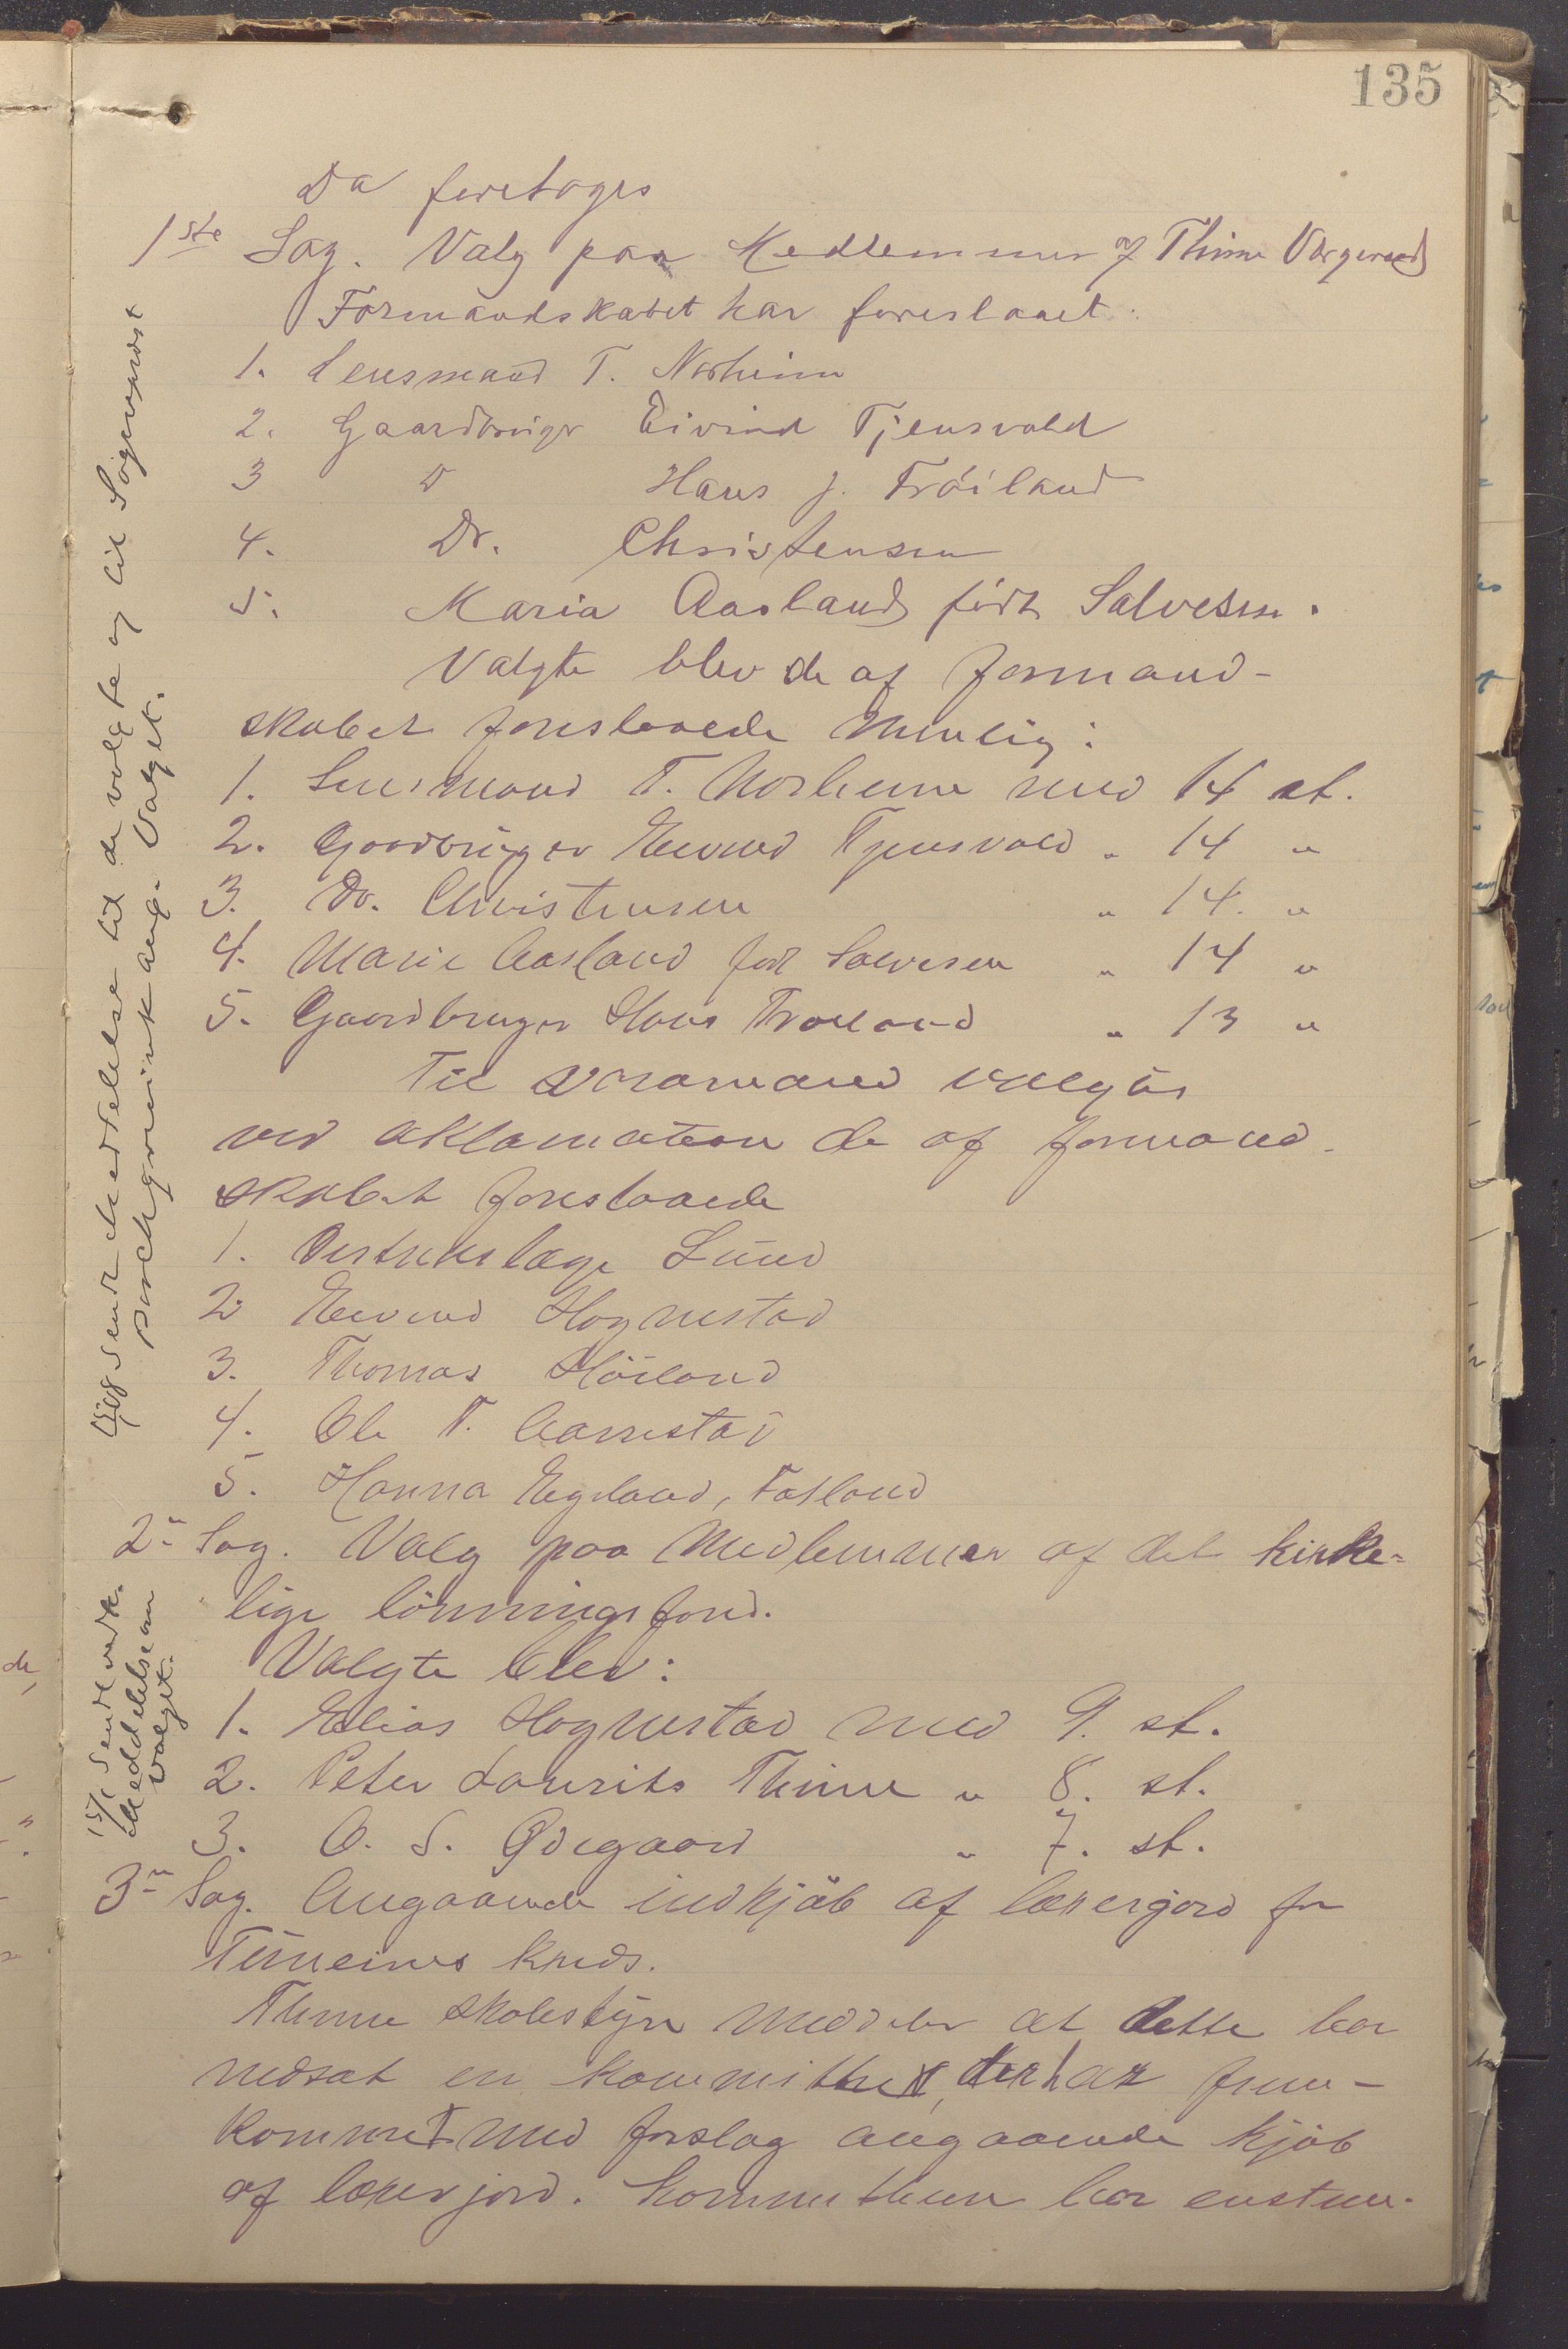 135
Da foretoges
1ste Sag. Valg paa Medlemmer af Thime Værgeraad
Formandskabet har foreslaaet:
1. Lensmand T. Norheim
2. Gaardbruger Eivind Tjensvold
3 D Hans J. Fröiland
4. Dr. Christensen
5. Maria Aasland født Salvesen.
Valgte blev de af formand-
skabet foreslaaede nemlig:
1. Lensmand T. Norheim med 14 st.
2. Gaardbruger Eivind Tjensvold " 14 "
3. Dr. Christensen " 14. "
4. Marie Aasland født Salvesen " 14 "
5. Gaardbruger Hans Fröiland " 13 "
Til Varamænd valgtes
ved aklamation de af formand-
skabet foreslaaede
1. Distriktslæge Lund
2. Eivind Hognestad
3. Thomas Höiland
4. Ole T. Aarrestad
5. Hanna Eegeland, Fosland
2n Sag. Valg paa Medlemmer af det kirke-
lige lönningsfond.
Valgte blev:
1. Elias Hognestad med 9. st.
2. Peter Laurits Thime " 8. st.
3. O. S. Ödegaard " 7. st.
3n Sag. Angaaende indkjöb af lærerjord for
Timeines kreds.
Thime skolestyre meddeler at dette har
nedsat en kommitte, der har frem-
kommet med forslag angaaende kjöb
af lærerjord. Kommitteen har enstem-
sendt Meddelelse til de valgte og til Sogneprost
angr. Valget.
15/1 Sendt
Meddelelse om
valget.